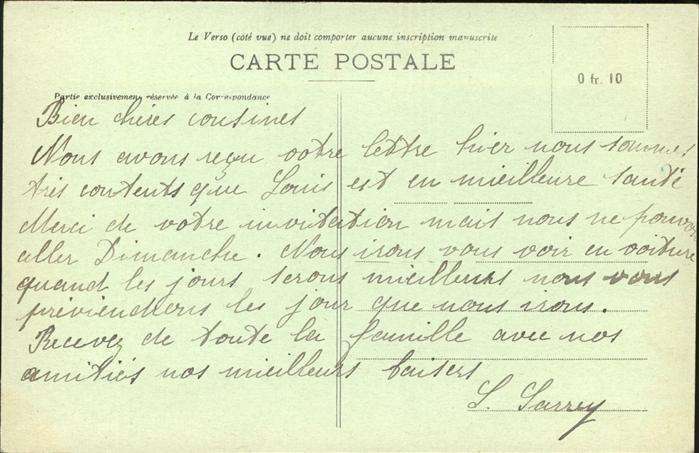 Le Verso (côté vue) ne doit comporter aucune inscription manuscrite
CARTE POSTALE
0 fr. 10
Partie exclusivement réservée à la Correspondance
Bien chères cousines
Nous avons reçu votre lettre hier nous sommes
très contents que Louis est en meilleure santé
Merci de votre invitation mais nous ne pouvons
aller Dimanche. Nous irons vous voir en voiture
quand les jours serons meilleurs nous vous
previendrons les jour que nous irons.
Recevez de toute la famille avec nos
amitiés nos meilleurs baisers
S. Sarrey